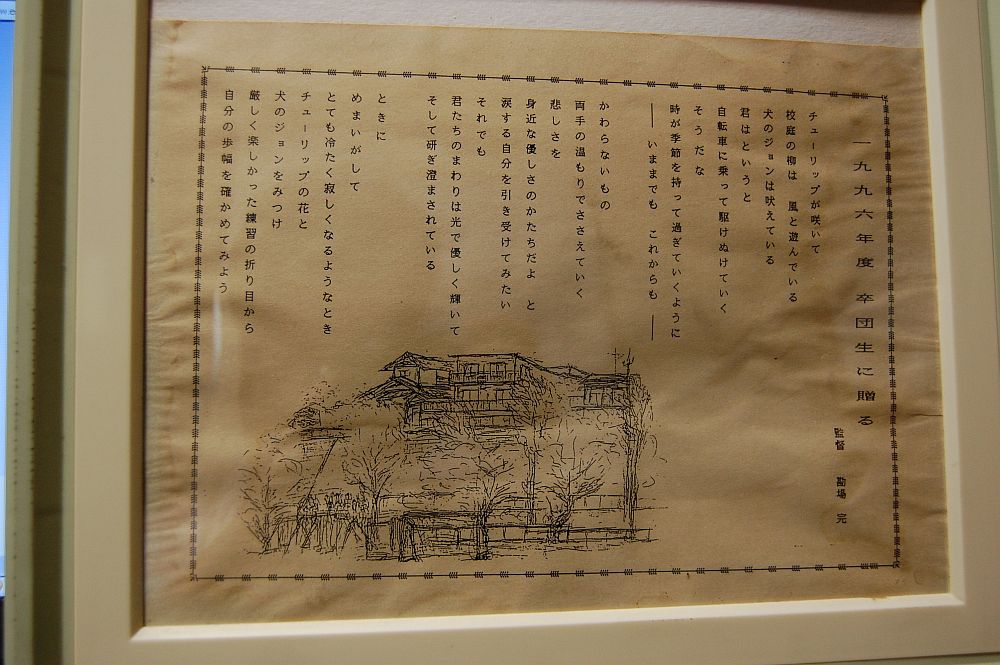 一九九六年度 卒団生に贈る
監督 勘場 完
チューリップが咲いて
校庭の柳は 風と遊んでいる
犬のジョンは吠えている
君はというと
自転車に乗って駆けぬけていく
そうだな
時が季節を持って過ぎていくように
―― いままでも これからも ――
かわらないもの
両手の温もりでささえていく
悲しさを
身近な優しさのかたちだよ と
涙する自分を引き受けてみたい
それでも
君たちのまわりは光で優しく輝いて
そして研ぎ澄まされている
ときに
めまいがして
とても冷たく寂しくなるようなとき
チューリップの花と
犬のジョンをみつけ
厳しく楽しかった練習の折り目から
自分の歩幅を確かめてみよう